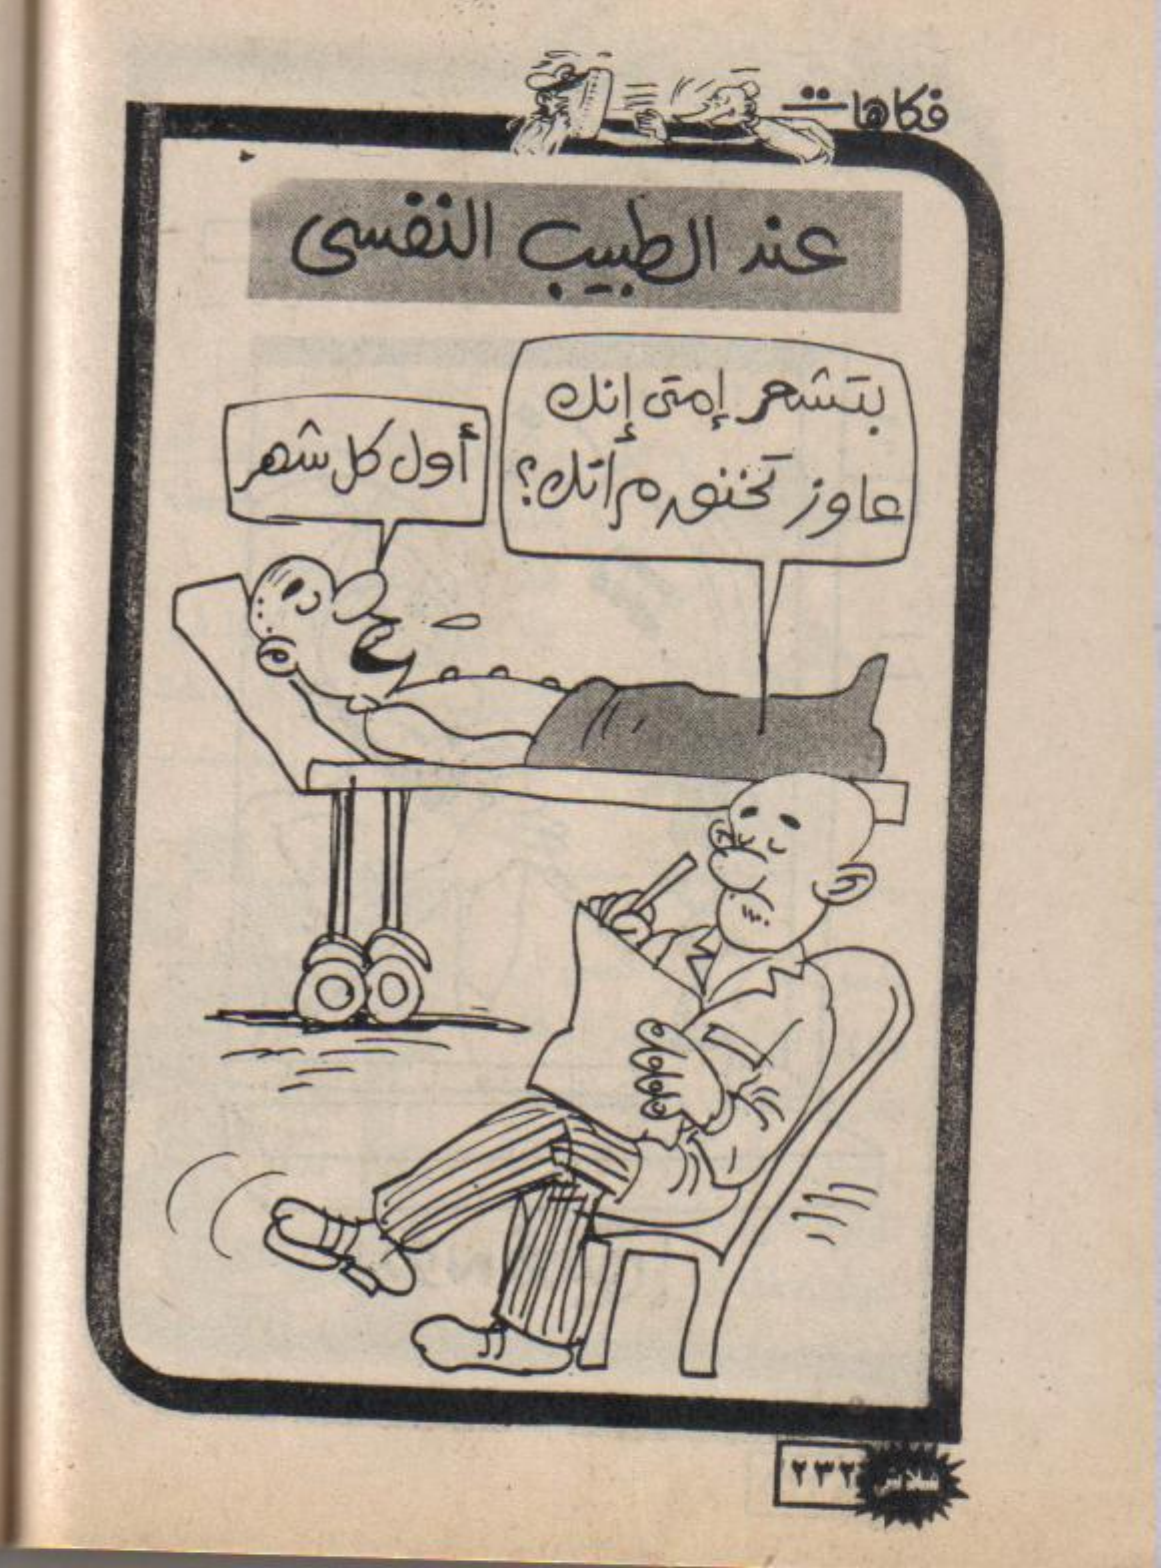 فكاهات
عند الطبيب النفسى
بتشعر إمتى إنك
عاوز تخنق مراتك؟
أول كل شهر
٢٣٢